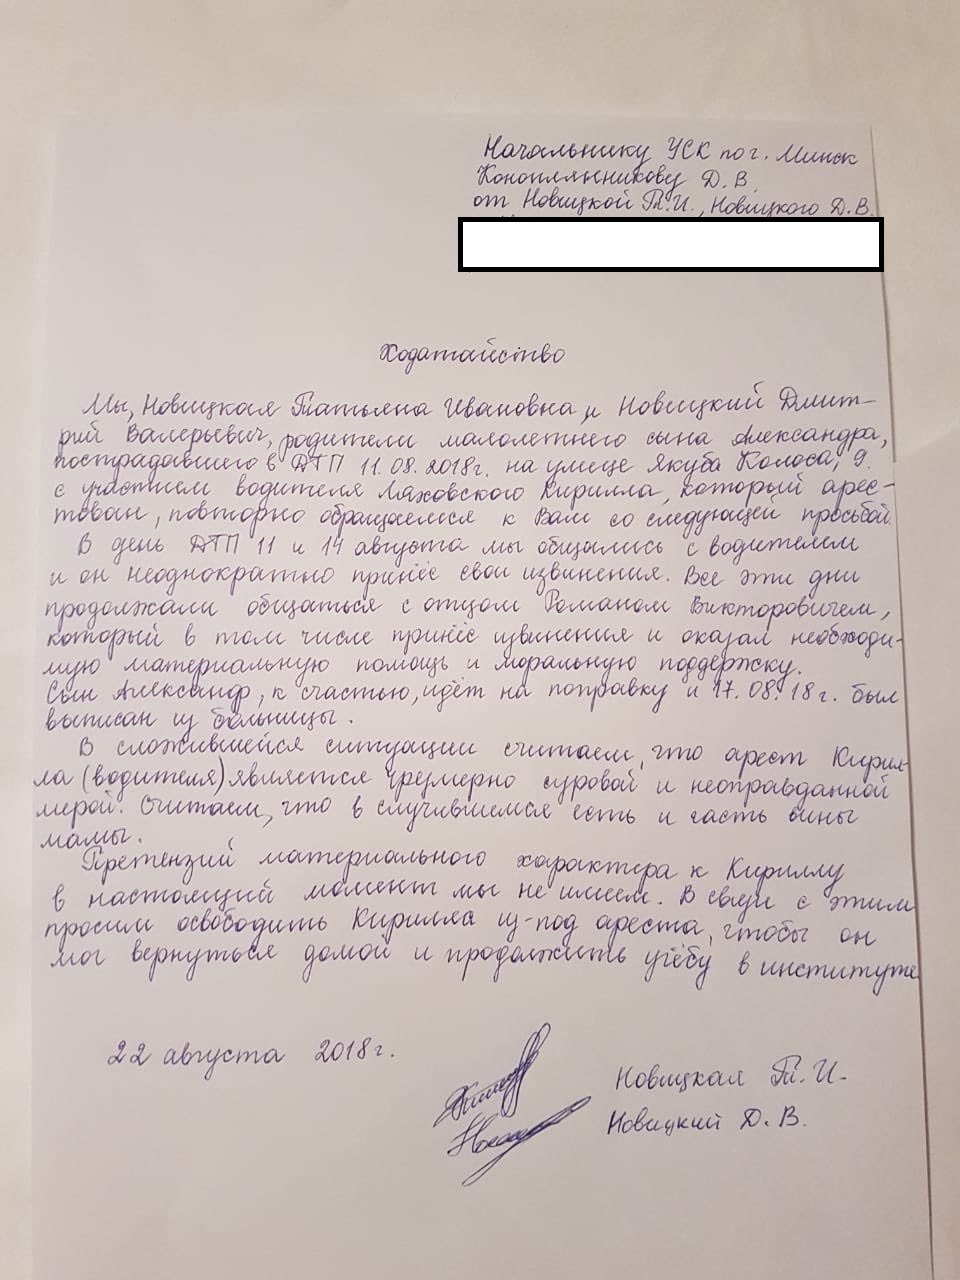 Начальнику УСК по г. Минск
Конопляникову Д. В.
от Новицкой Т. И., Новицкого Д. В.
Ходатайство
Мы, Новицкая Татьяна Ивановна, и Новицкий Дмит-
рий Валерьевич, родители малолетнего сына Александра,
пострадавшего в ДТП 11.08.2018г. на улице Якуба Коласа, 9.
с участием водителя Ляховского Кирилла, который арес-
тован, повторно обращаемся к Вам со следующей просьбой.
В день ДТП 11 и 14 августа мы общались с водителем
и он неоднократно принёс свои извинения. Все эти дни
продолжали общаться с отцом Романом Викторовичем,
который в том числе принёс извинения и оказал необходи-
мую материальную помощь и моральную поддержку.
Сын Александр, к счастью, идёт на поправку и 17.08.18г. был
выписан из больницы.
В сложившейся ситуации считаем, что арест Кирил-
ла (водителя) является чрезмерно суровой и неоправданной
мерой. Считаем, что в случившемся есть и часть вины
мамы.
Претензий материального характера к Кириллу
в настоящий момент мы не имеем. В связи с этим
просим освободить Кирилла из-под ареста, чтобы он
мог вернуться домой и продолжить учёбу в институте
22 августа 2018г.
Новицкая Т. И.
Новицкий Д. В.